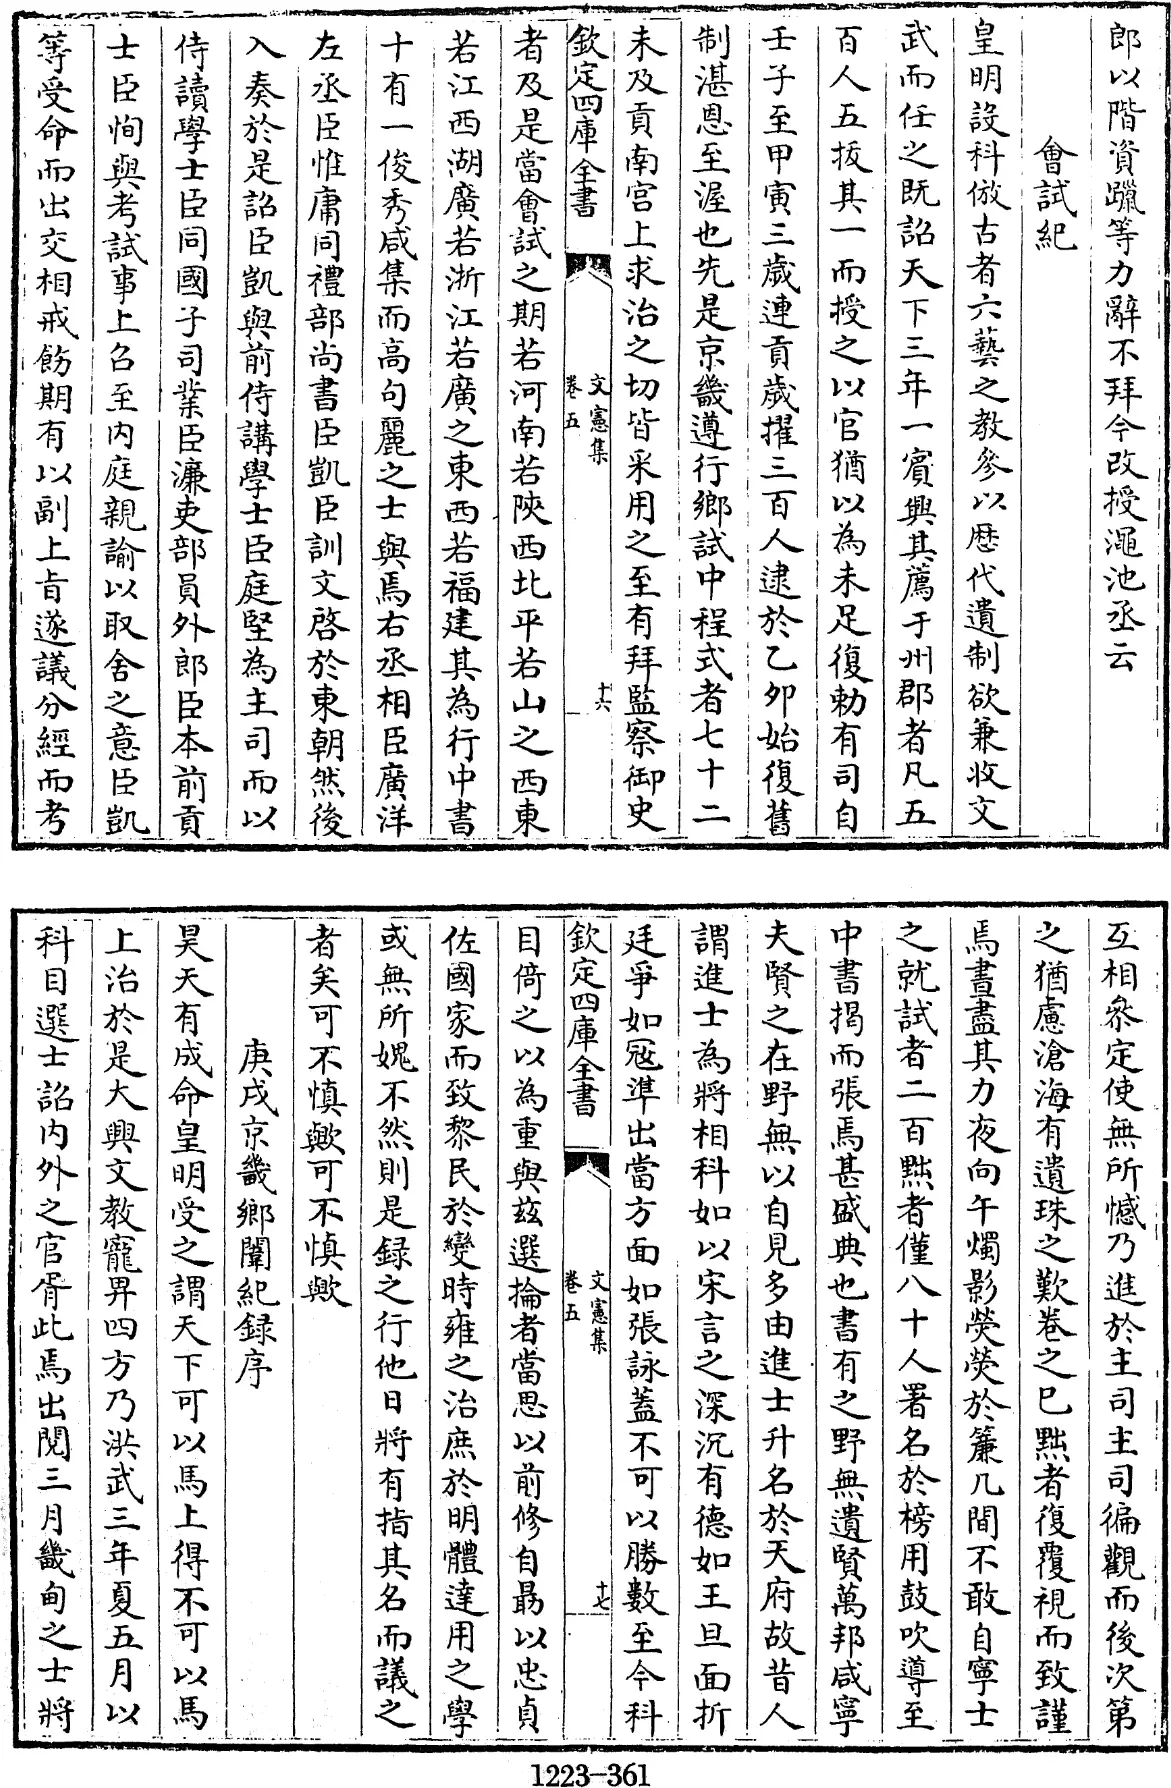 郎以階資躐等力辭不拜今改授澠池丞云
會試紀
皇明設科倣古者六藝之教參以歴代遺制欲兼收文
武而任之既詔天下三年一賓興其薦于州郡者凡五
百人五拔其一而授之以官猶以為未足復勅有司自
壬子至甲寅三歲連貢歲擢三百人逮於乙夘始復舊
制湛恩至渥也先是京畿遵行鄉試中程式者七十二
未及貢南宫上求治之切皆采用之至有拜監察御史
欽定四庫全書
文憲集
卷五
十六
者及是當會試之期若河南若陝西北平若山之西東
若江西湖廣若浙江若廣之東西若福建其為行中書
十有一俊秀咸集而高句麗之士與焉右丞相臣廣洋
左丞臣惟庸同禮部尚書臣凱臣訓文啓於東朝然後
入奏於是詔臣凱與前侍講學士臣庭堅為主司而以
侍讀學士臣同國子司業臣濂吏部員外郎臣本前貢
士臣恂與考試事上召至内庭親諭以取舍之意臣凱
等受命而出交相戒飭期有以副上㫖遂議分經而考
互相叅定使無所憾乃進於主司主司徧觀而後次第
之猶慮滄海有遺珠之歎卷之已黜者復覆視而致謹
焉晝盡其力夜向午燭影熒熒於簾几間不敢自寧士
之就試者二百黜者僅八十人署名於榜用鼓吹導至
中書揭而張焉甚盛典也書有之野無遺賢萬邦咸寧
夫賢之在野無以自見多由進士升名於天府故昔人
謂進士為將相科如以宋言之深沉有德如王旦面折
廷爭如冦準出當方面如張詠蓋不可以勝數至今科
欽定四庫全書
文憲集
卷五
十七
目倚之以為重與兹選掄者當思以前修自勗以忠貞
佐國家而致黎民於變時雍之治庶於明體達用之學
或無所媿不然則是録之行他日將有指其名而議之
者矣可不慎歟可不慎歟
庚戌京畿鄉闈紀録序
昊天有成命皇明受之謂天下可以馬上得不可以馬
上治於是大興文教寵畀四方乃洪武三年夏五月以
科目選士詔内外之官胥此焉出閱三月畿甸之士將
1223-361